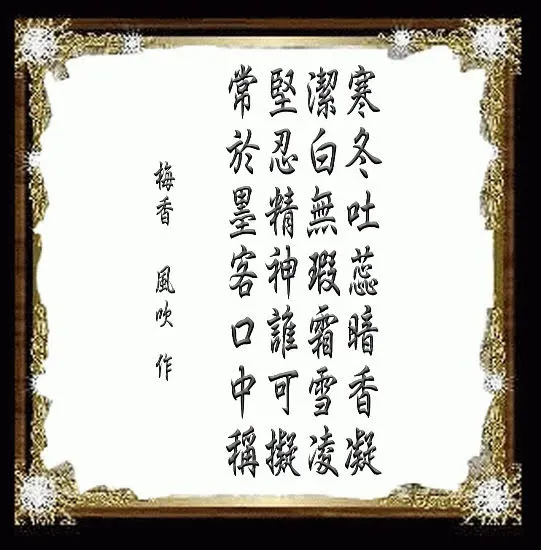 寒冬吐蕊暗香凝
潔白無瑕霜雪凌
堅忍精神誰可擬
常於墨客口中稱
梅香 風吹 作